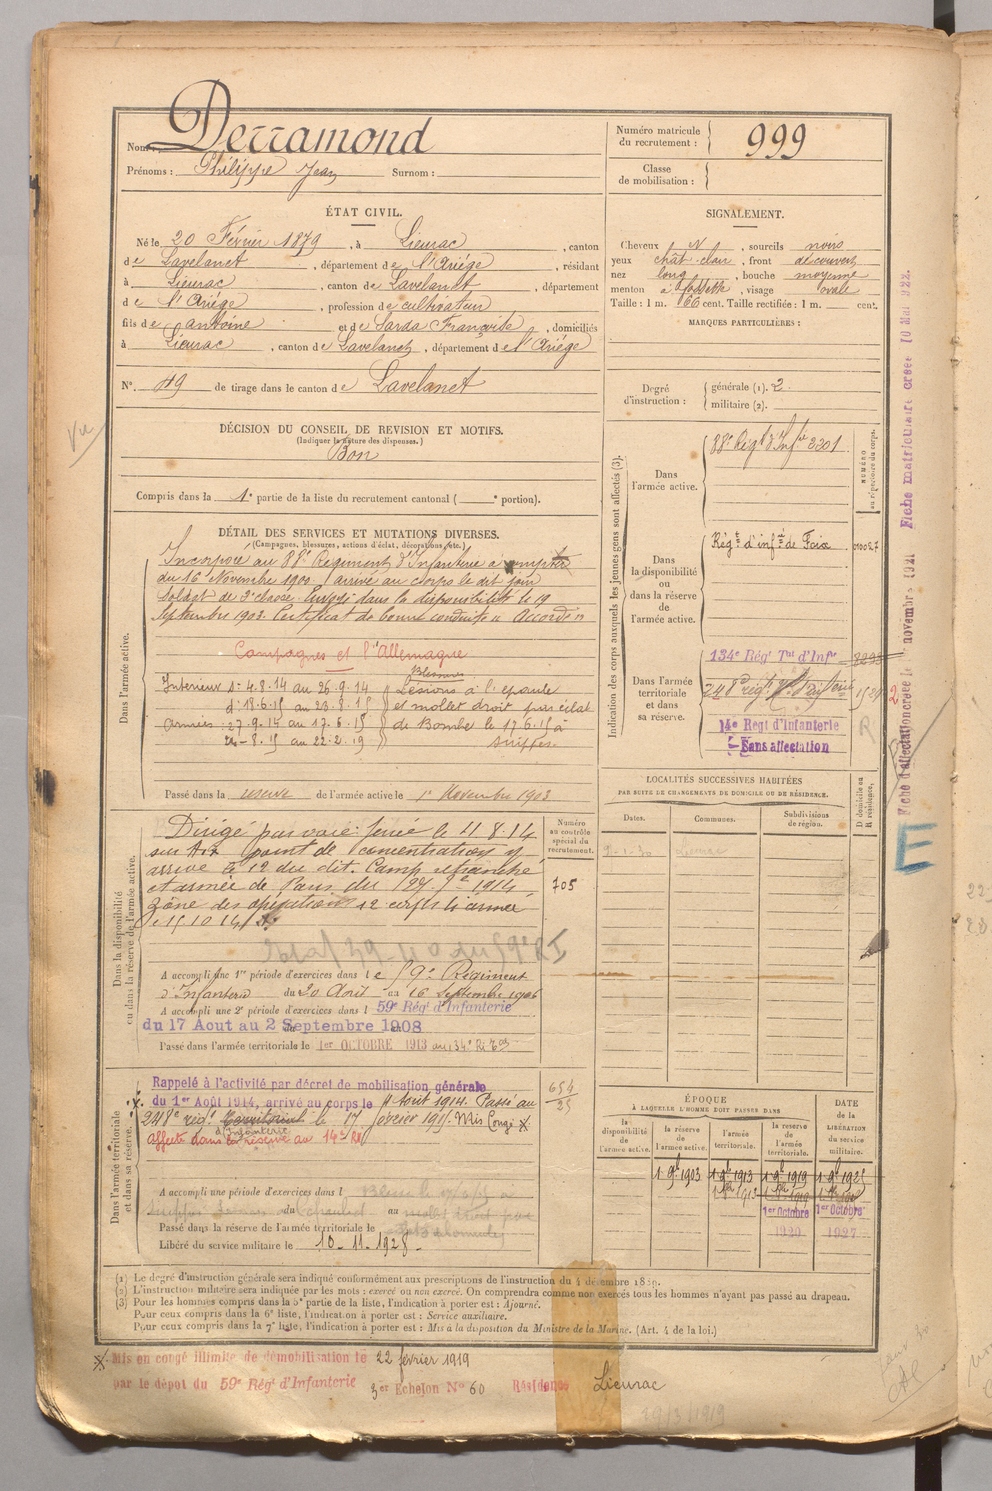 Nom : Derramond
Prénoms : Philippe Jean Surnom :
Numéro matricule du recrutement : 999
Classe de mobilisation :
ÉTAT CIVIL.
Né le 20 Février 1879, à Lieurac, canton
de Lavelanet, département de l'Ariège, résidant
à Lieurac, canton de Lavelanet, département
de l'Ariège, profession de cultivateur
fils de antoine et de Sarda Françoise, domiciliés
à Lieurac, canton de Lavelanet, département de l'Ariège
N° 49 de tirage dans le canton de Lavelanet
SIGNALEMENT.
Cheveux N, sourcils noirs
yeux chât. clair, front découvert
nez long, bouche moyenne
menton à fossette, visage ovale
Taille : 1 m. 66 cent. Taille rectifiée : 1 m. cent.
MARQUES PARTICULIÈRES :
Degré d'instruction : générale (1). 2.
militaire (2).
Vu
DÉCISION DU CONSEIL DE REVISION ET MOTIFS.
(Indiquer la nature des dispenses.)
Bon
Compris dans la 1e partie de la liste du recrutement cantonal ( e portion).
DÉTAIL DES SERVICES ET MUTATIONS DIVERSES.
(Campagnes, blessures, actions d'éclat, décorations, etc.)
Dans l'armée active.
Incorporé au 88e Régiment d'Infanterie à compter
du 16 Novembre 1900. arrivé au corps le dit jour
soldat de 2e classe. Envoyé dans la disponibilité le 19
Septembre 1903. Certificat de bonne conduite "Accordé"
Campagnes et l'Allemagne
Blessures
Intérieur 1- 4.8.14 au 26.9.14 Lésions à l'épaule
d' 18.6.15 au 23.8.15 et mollet droit par éclat
Armées : 27.9.14 au 17.6.15 de Bombe le 17.6.15 à
24-8.15 au 22.2.19 Suippes
Passé dans la réserve de l'armée active le 1er Novembre 1903
Indication des corps auxquels les jeunes gens sont affectés (3).
Dans l'armée active.
88e Régt d'Infie 3301
NUMÉRO au répertoire du corps.
Dans la disponibilité ou dans la réserve de l'armée active.
Régt d'infie de Foix
Dans l'armée territoriale et dans sa réserve.
134e Régt Tal d'Infie
248e rég.
14e Regt d'Infanterie
Sans affectation
R
LOCALITÉS SUCCESSIVES HABITÉES
PAR SUITE DE CHANGEMENTS DE DOMICILE OU DE RÉSIDENCE.
Dates. Communes. Subdivisions de région.
D domicile ou R résidence.
Lieurac
Dans la disponibilité ou dans la réserve de l'armée active.
Dirigé par voie ferrée le 11.8.14
sur point de concentration y
arrivé le 12 du dit. Camp retranché
et armée de Paris du 1914
Zone des opérations 12 corps d'armée
le 15.10.14
Numéro au contrôle spécial du recrutement.
705
A accompli une 1re période d'exercices dans le 59e Régiment
d'Infanterie du 20 Août au 16 Septembre 1906
A accompli une 2e période d'exercices dans l 59e Régt d'Infanterie
du 17 Aout au 2 Septembre 1908
Passé dans l'armée territoriale le 1er OCTOBRE 1913 au 134e
Dans l'armée territoriale et dans sa réserve.
Rappelé à l'activité par décret de mobilisation générale
du 1er Août 1914, arrivé au corps le 4 Août 1914. Passé au
248e rég. Territorial d'Infanterie le 17 février 1915. Mis Congé
affecté dans la réserve au 14e RI
654
25
A accompli une période d'exercices dans l
du au
Passé dans la réserve de l'armée territoriale le
Libéré du service militaire le 10-11-1928-
ÉPOQUE
À LAQUELLE L'HOMME DOIT PASSER DANS
la disponibilité de l'armée active.
la réserve de l'armée active.
l'armée territoriale.
la réserve de l'armée territoriale.
DATE de la LIBÉRATION du service militaire.
1 9e 1903 1 9e 1913 1 9e 1919
1er Octobre 1er Octobre
1920 1927
(1) Le degré d'instruction générale sera indiqué conformément aux prescriptions de l'instruction du 4 décembre 1889.
(2) L'instruction militaire sera indiquée par les mots : exercé ou non exercé. On comprendra comme non exercés tous les hommes n'ayant pas passé au drapeau.
(3) Pour les hommes compris dans la 5e partie de la liste, l'indication à porter est : Ajourné.
Pour ceux compris dans la 6e liste, l'indication à porter est : Service auxiliaire.
Pour ceux compris dans la 7e liste, l'indication à porter est : Mis à la disposition du Ministre de la Marine. (Art. 4 de la loi.)
Mis en congé illimité de démobilisation le 22 février 1919
par le dépot du 59e Régt d'Infanterie 3er Echelon N° 60 Résidence Lieurac
Fiche matriculaire créée 10 Mai 922.
Fiche d'affectation créée le novembre 1921
E